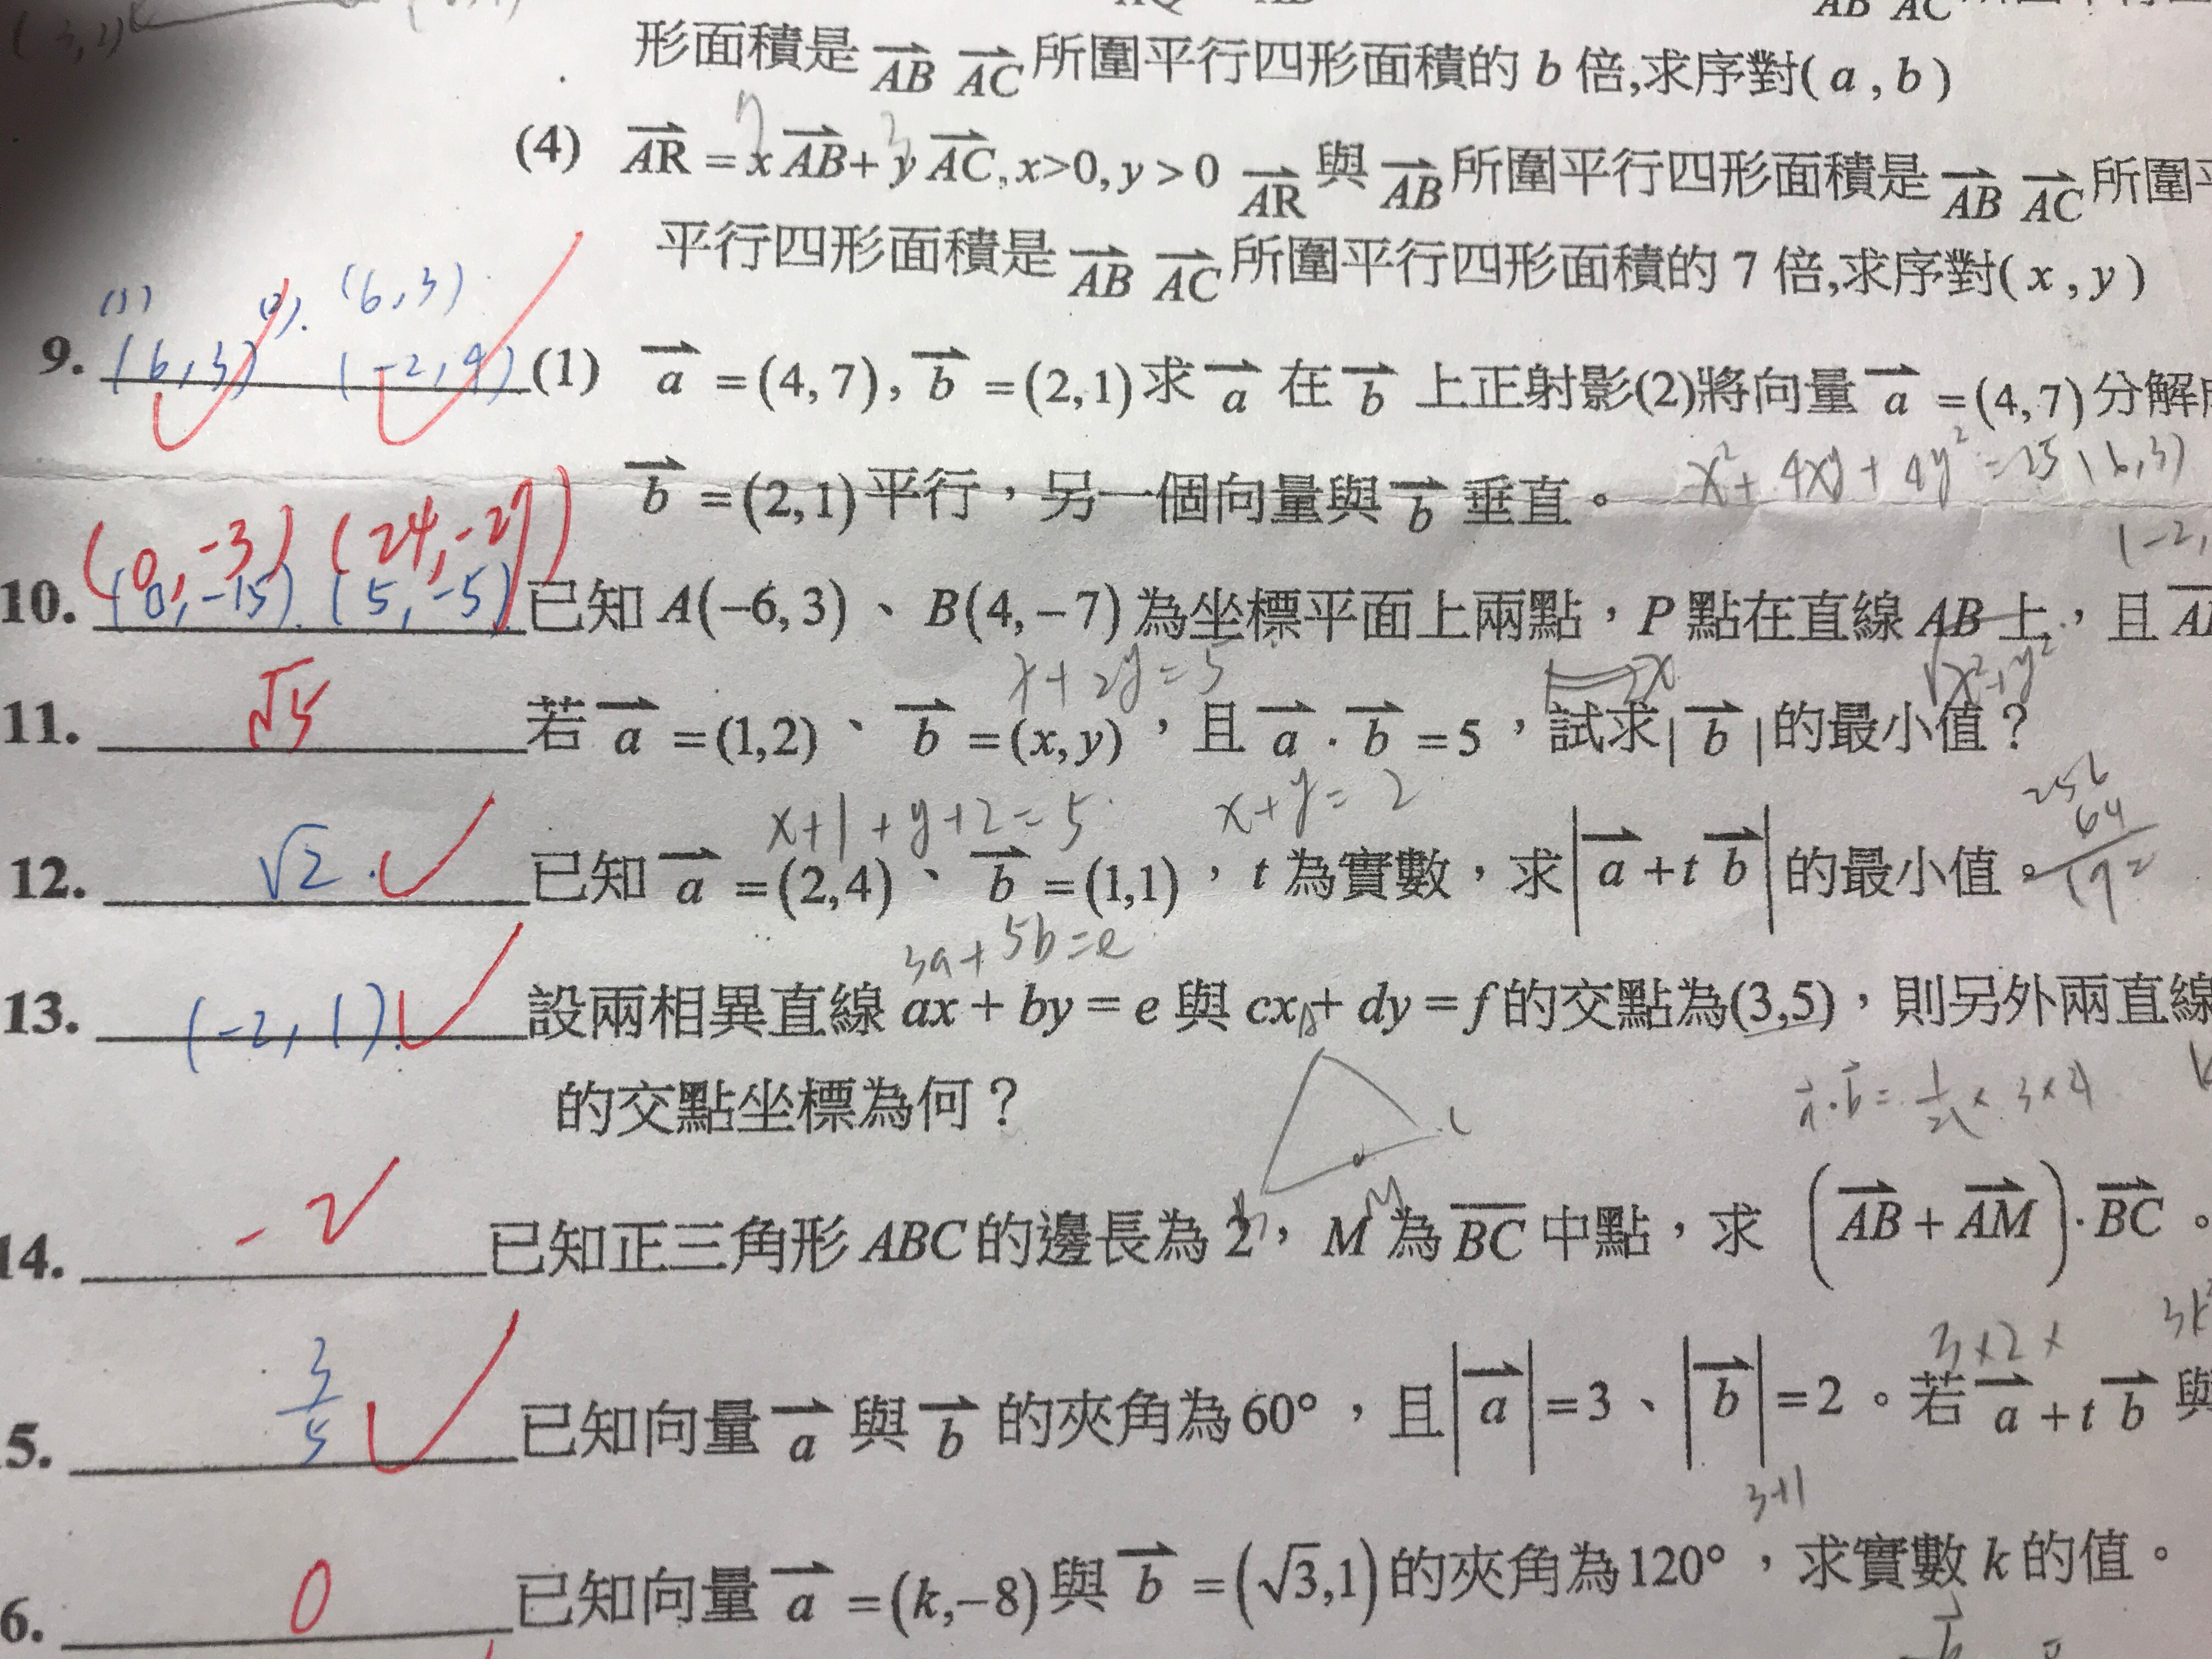 形面積是 AB AC 所圍平行四形面積的 b 倍,求序對( a , b )
(4) AR = x AB + y AC, x>0, y > 0 AR 與 AB 所圍平行四形面積是 AB AC 所圍
平行四形面積是 AB AC 所圍平行四形面積的 7 倍,求序對( x , y )
(1) (6,3)
9. (6,3) (-2,4) (1) a = (4, 7), b = (2,1) 求 a 在 b 上正射影(2)將向量 a = (4, 7) 分解
b = (2,1) 平行，另一個向量與 b 垂直。 x² + 4xy + 4y² = 25 (6,3)
(0,-3) (24,-27)
10. (0,-15). (5,-5). 已知 A(−6, 3)、B(4, −7) 為坐標平面上兩點，P 點在直線 AB 上，且
x + 2y = 5 √x²+y²
11. √5 若 a = (1,2)、b = (x, y)，且 a · b = 5，試求| b |的最小值？
x+1+y+2=5 x+y=2 256
64
12. √2. 已知 a = (2,4)、b = (1,1)，t 為實數，求| a + t b |的最小值。 192
3a+5b=e
13. (-2, 1). 設兩相異直線 ax + by = e 與 cx + dy = f 的交點為(3,5)，則另外兩直線
的交點坐標為何？ a·b = 1/2 × 3 × 4
14. -2 已知正三角形 ABC 的邊長為 2，M 為 BC 中點，求 ( AB + AM ) · BC。
3×2×
5. 3/5 已知向量 a 與 b 的夾角為 60°，且| a | = 3、| b | = 2。若 a + t b 與
3+1
6. 0 已知向量 a = (k,−8) 與 b = (√3,1) 的夾角為120°，求實數 k 的值。